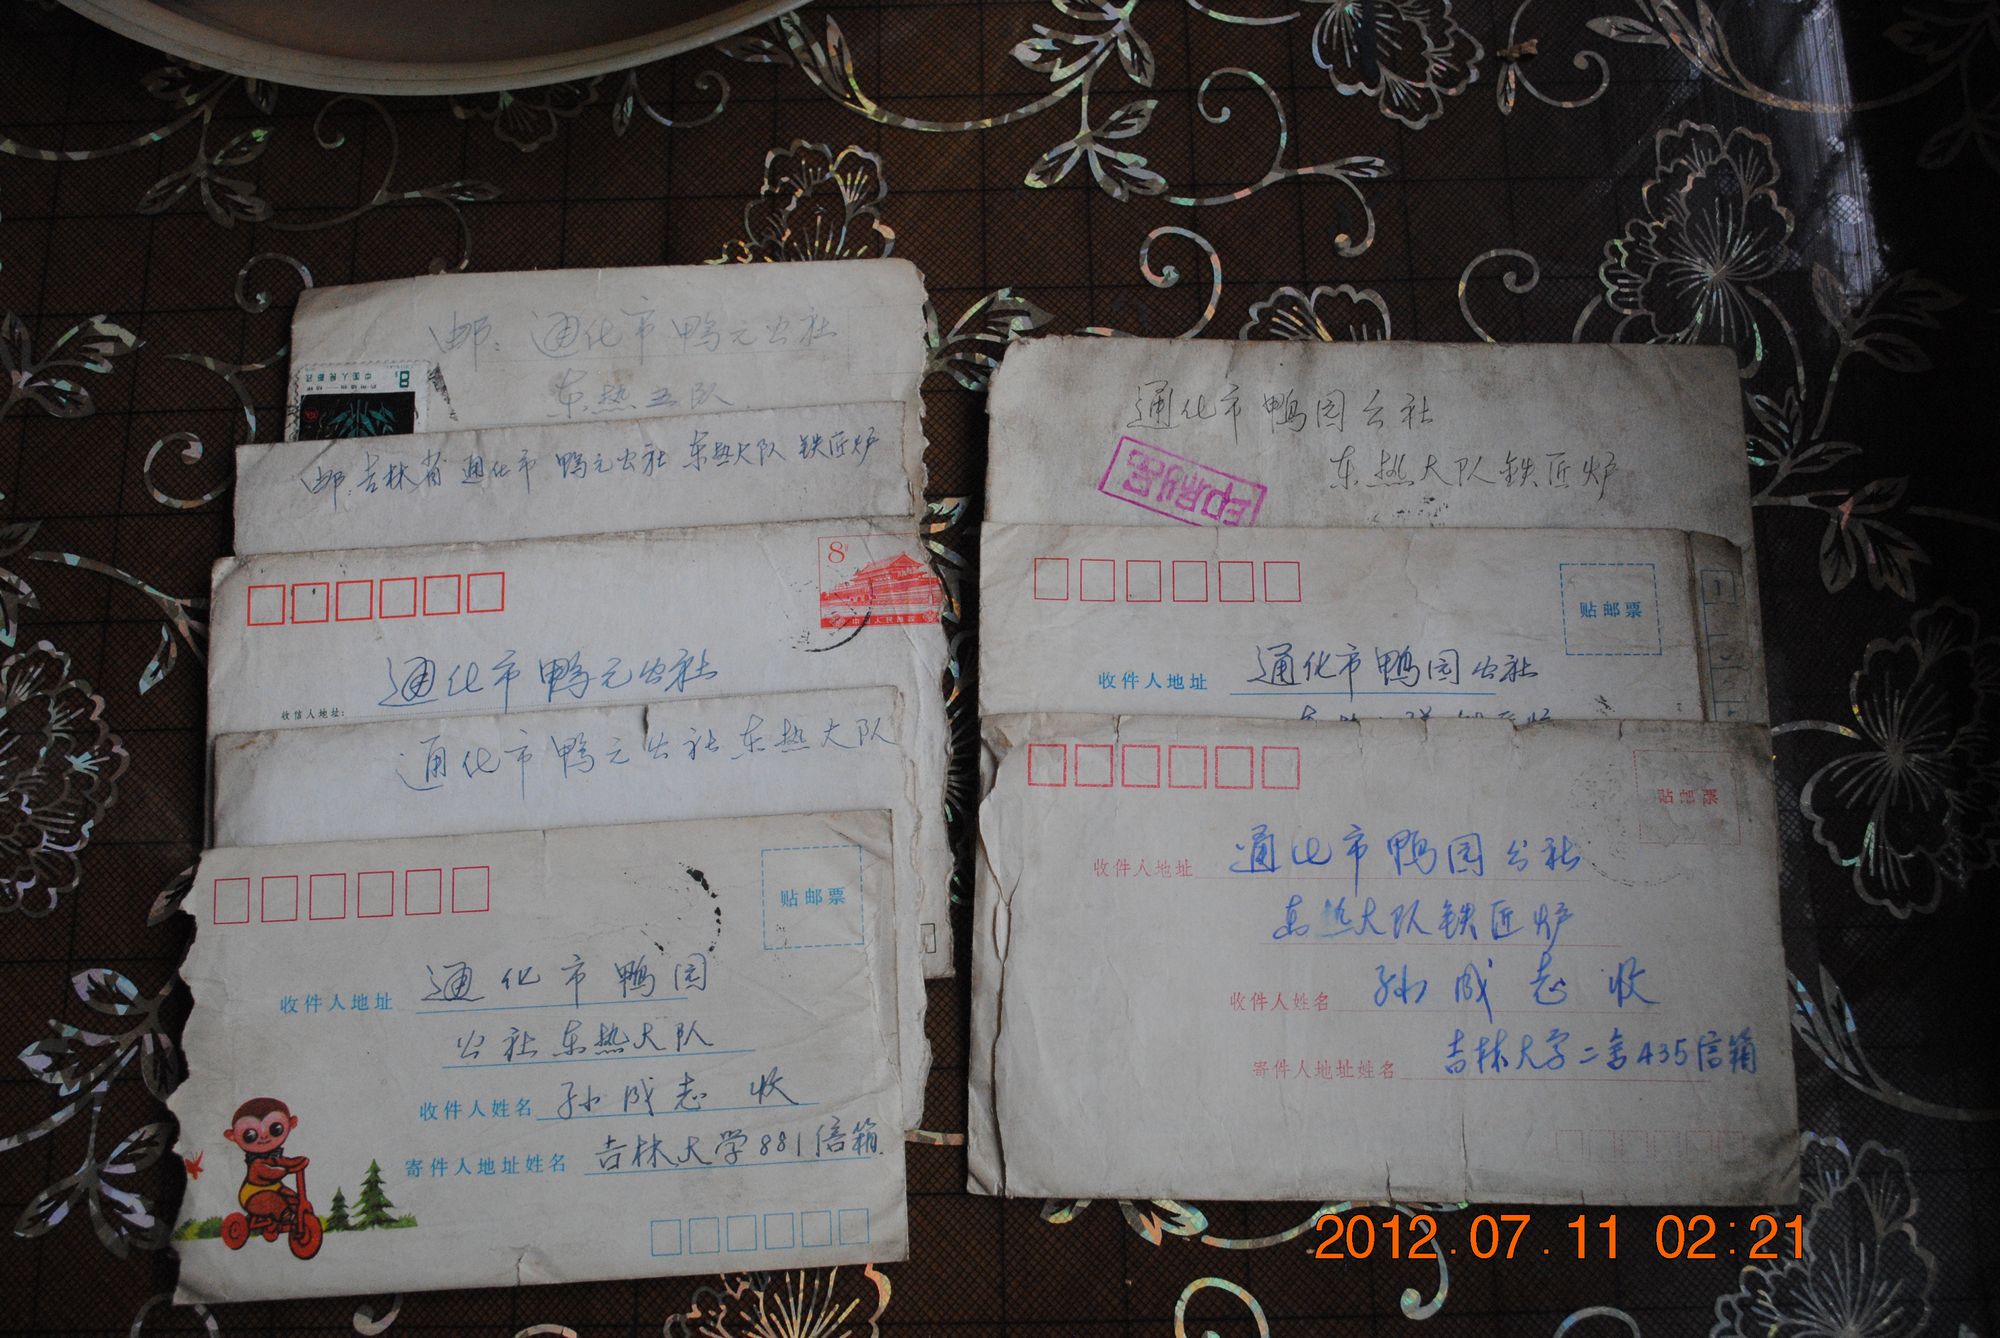 邮：通化市鸭元公社
东热五队
8分
中国人民邮政
邮：吉林省通化市鸭元公社东热大队铁匠炉
8分
中国人民邮政
通化市鸭元公社
收信人地址：
通化市鸭元公社东热大队
贴邮票
收件人地址 通化市鸭园
公社东热大队
收件人姓名 孙成志 收
寄件人地址姓名 吉林大学881信箱
通化市鸭园公社
东热大队铁匠炉
印刷品
贴邮票
收件人地址 通化市鸭园公社
贴邮票
收件人地址 通化市鸭园公社
东热大队铁匠炉
收件人姓名 孙成志 收
寄件人地址姓名 吉林大学二舍435信箱
2012.07.11 02:21